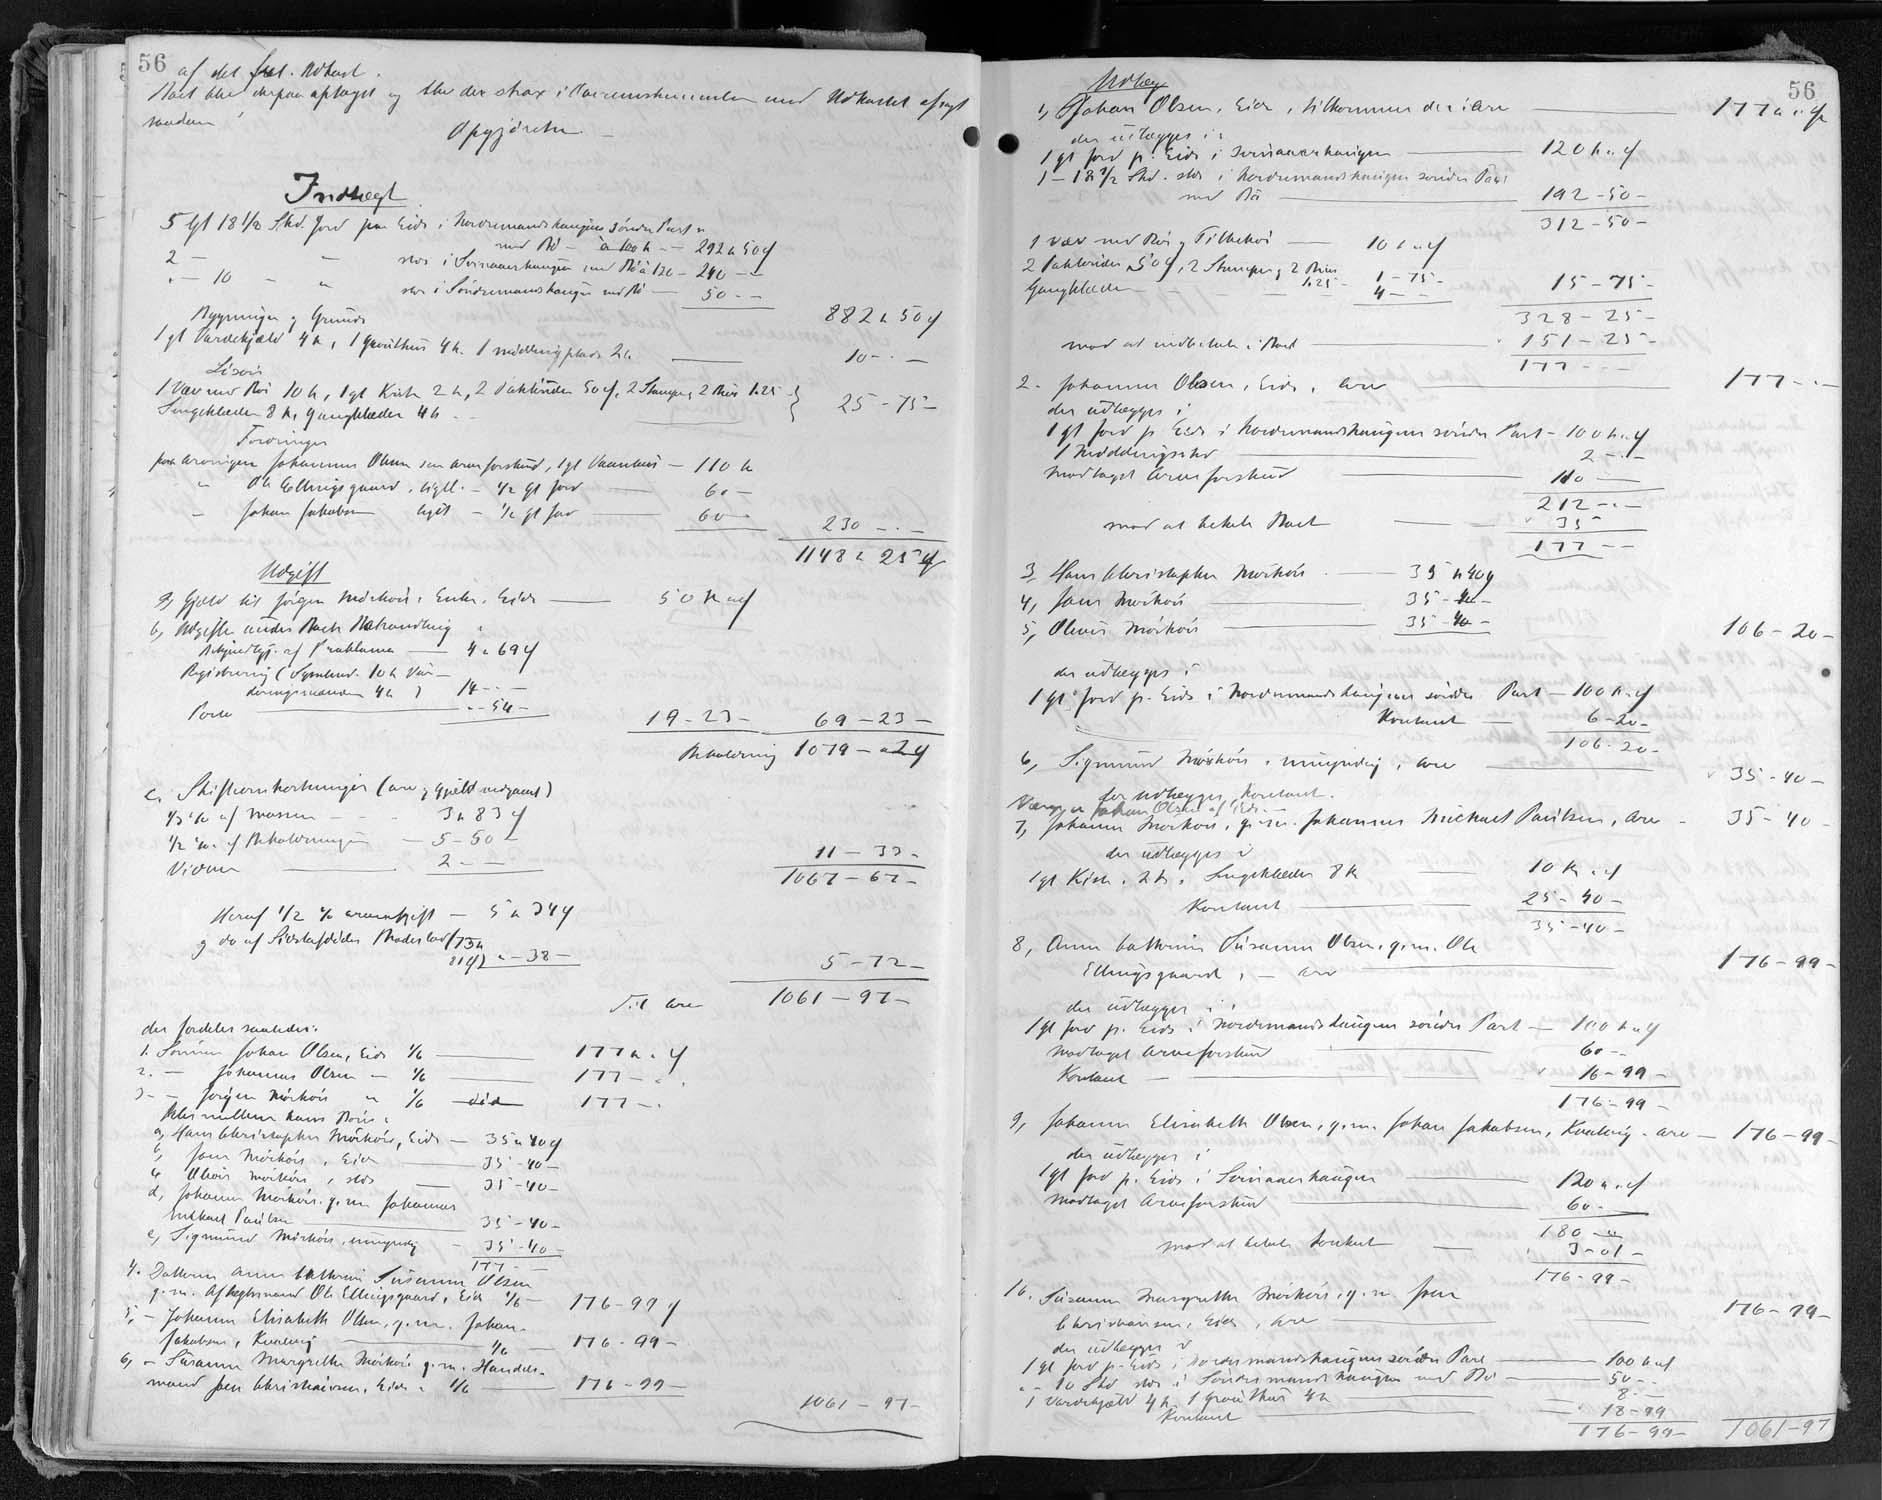 56
af det
Boet blev derpaa optaget og blev der strax i med Udkastet afsagt
saadan
Opgjörelse
Indtægt
5 gl 18 1/2 Skd. Jord paa Eide i Nordremandshaugens söndre Part
med Bö - à 100 k - - 292 k 50 f
2 - " - stds i med Bö à 120 - 240 - -
" - 10 - " stds i Söndremandshaugen med Bö - 50 - -
882 k 50 f
Bygninger og Grunde
1 gl 4 k, 1 Grouthus 4 k. 1 möddingplads 2 k
10 - " -
Lösöre
1 Væv med Bö 10 k, 1 gl Kiste 2 k, 2 50 f, 2 2 1.25
Sengeklæder 8 k, Gangklæder 4 k - -
25 - 75 -
Fordringer
paa Arvingen Johannes Olsen som Arveforskud, 1 gl Vaanhus - 110 k
" Ole Ellingsgaard, ligel. - 1/2 gl Jord 60 -
- Johan Jakobsen ligel - 1/2 gl Jord 60 -
230 - " -
1148 k 25 f
Udgift
a, Gjæld til Jörgen Mörköres Enke, Eide 50 k " f
b, Udgifter under Boets Behandling
Bekjendtgj. af Proklama 4 k 69 f
Registrering (Sysselmd. 10 k Vur-
deringsmænden 4 k) 14 - " -
Porto " - 54 -
19 - 23 - 69 - 23 -
Beholdning 1079 - " 2 f
c. Skifteomkostninger (arv og gjæld vedgaaet)
1/3 % af Massen - - - 3 k 83 f
1/2 % af Beholdningen - 5 - 50 -
Vidner 2 - -
11 - 33 -
1067 - 69 -
Heraf 1/2 % arveafgift - 5 k 34 f
g do af Sidstafdödes Broderlod (73 k
21 f) " - 38 -
5 - 72 -
Til Arv 1061 - 97 -
der fordeles saaledes:
1. Sönnen Johan Olsen, Eide 1/6 177 k " f
2. - Johannes Olsen - 1/6 177 - " -
3 - - Jörgen Mörköre " 1/6 död 177 - "
Deles mellem hans Börn:
a, Hans Christopher Mörköre, Eide - 35 k 40 f
b, Jens Mörköre, Eide 35 - 40 -
c, Olevis Mörköre, stds 35 - 40 -
d, Johanne Mörköre. g. m. Johannes
Michael Paulsen 35 - 40 -
e, Sigmund Mörköre, umyndig - 35 - 40 -
177 - -
4. Datteren Anne Cathrine Susanne Olsen
g. m. Ole Ellingsgaard, Eide 1/6 - 176 - 99 f
5, - Johanne Elisabeth Olsen, g. m. Johan
Jakobsen, Kvalvig 1/6 176 - 99 -
6, - Susanne Margrethe Mörköre g. m. Handels-
mand Joen Christiansen, Eide. 1/6 176 - 99 -
1061 - 97 -
56
Udlæg
1, Johan Olsen, Eide, tilkommer der i Arv 177 k " f
der udlægges i:
1 gl Jord p. Eide i 120 k " f
1 - 18 1/2 Skd. stds i Nordremandshaugens söndre Part
med Bö 192 - 50 -
312 - 50 -
1 Væv med Bö og Tilbehör 10 k " f
2 50 f, 2 2 1.25 - 1 - 75 -
Gangklæder - - - 4 - - 15 - 75 -
328 - 25 -
mod at indbetale i Boet 151 - 25 -
177 - - -
2. Johannes Olsen, Eide, Arv 177 - " -
der udlægges i
1 gl Jord p. Eide i Nordremandshaugens söndre Part - 100 k " f
1 Möddingsted 2 - " -
Modtaget Arveforskud 110 -
212 - " -
mod at betale Boet 35 -
177 - -
3, Hans Christopher Mörköre 35 k 40 f
4, Jens Mörköre 35 - 40 -
5, Olevis Mörköre 35 - 40 -
106 - 20 -
der udlægges i
1 gl Jord p. Eide i Nordremandshaugens söndre Part - 100 k " f
Kontant 6 - 20 -
106 - 20 -
6, Sigmund Mörköre, umyndig, Arv 35 - 40 -
der udlægges kontant.
Værge er Johan Olsen af Eide
7, Johanne Mörköre, g. m. Johannes Michael Paulsen, Arv - 35 - 40 -
der udlægges i
1 gl Kiste 2 k, Sengeklæder 8 k 10 k " f
Kontant 25 - 40 -
35 - 40 -
8, Anne Cathrine Susanne Olsen, g. m. Ole
Ellingsgaard, - Arv 176 - 99 -
der udlægges i
1 gl Jord p. Eide i Nordremandshaugens söndre Part - 100 k " f
Modtaget Arveforskud 60 - -
Kontant - 16 - 99 -
176 - 99 -
9, Johanne Elisabeth Olsen, g. m. Johan Jakobsen, Kvalvig - Arv - 176 - 99 -
der udlægges i
1 gl Jord p. Eide i 120 k " f
Modtaget Arveforskud 60 -
180 - "
mod at betale kontant 3 - 01 -
176 - 99 -
10. Susanne Margrethe Mörköre, g. m. Joen
Christiansen, Eide, Arv 176 - 99 -
der udlægges i
1 gl Jord p. Eide i Nordremandshaugens söndre Part 100 k " f
" - 10 Skd stds i Söndremandshaugen med Bö 50 - -
1 4 k, 1 Grouthus 4 k 8 - -
Kontant 18 - 99
176 - 99 - 1061 - 97